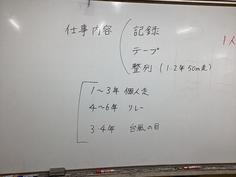 仕事内容
記録
テープ
整列(1.2年50m走)
1〜3年 個人走
4〜6年 リレー
3.4年 台風の目
1人